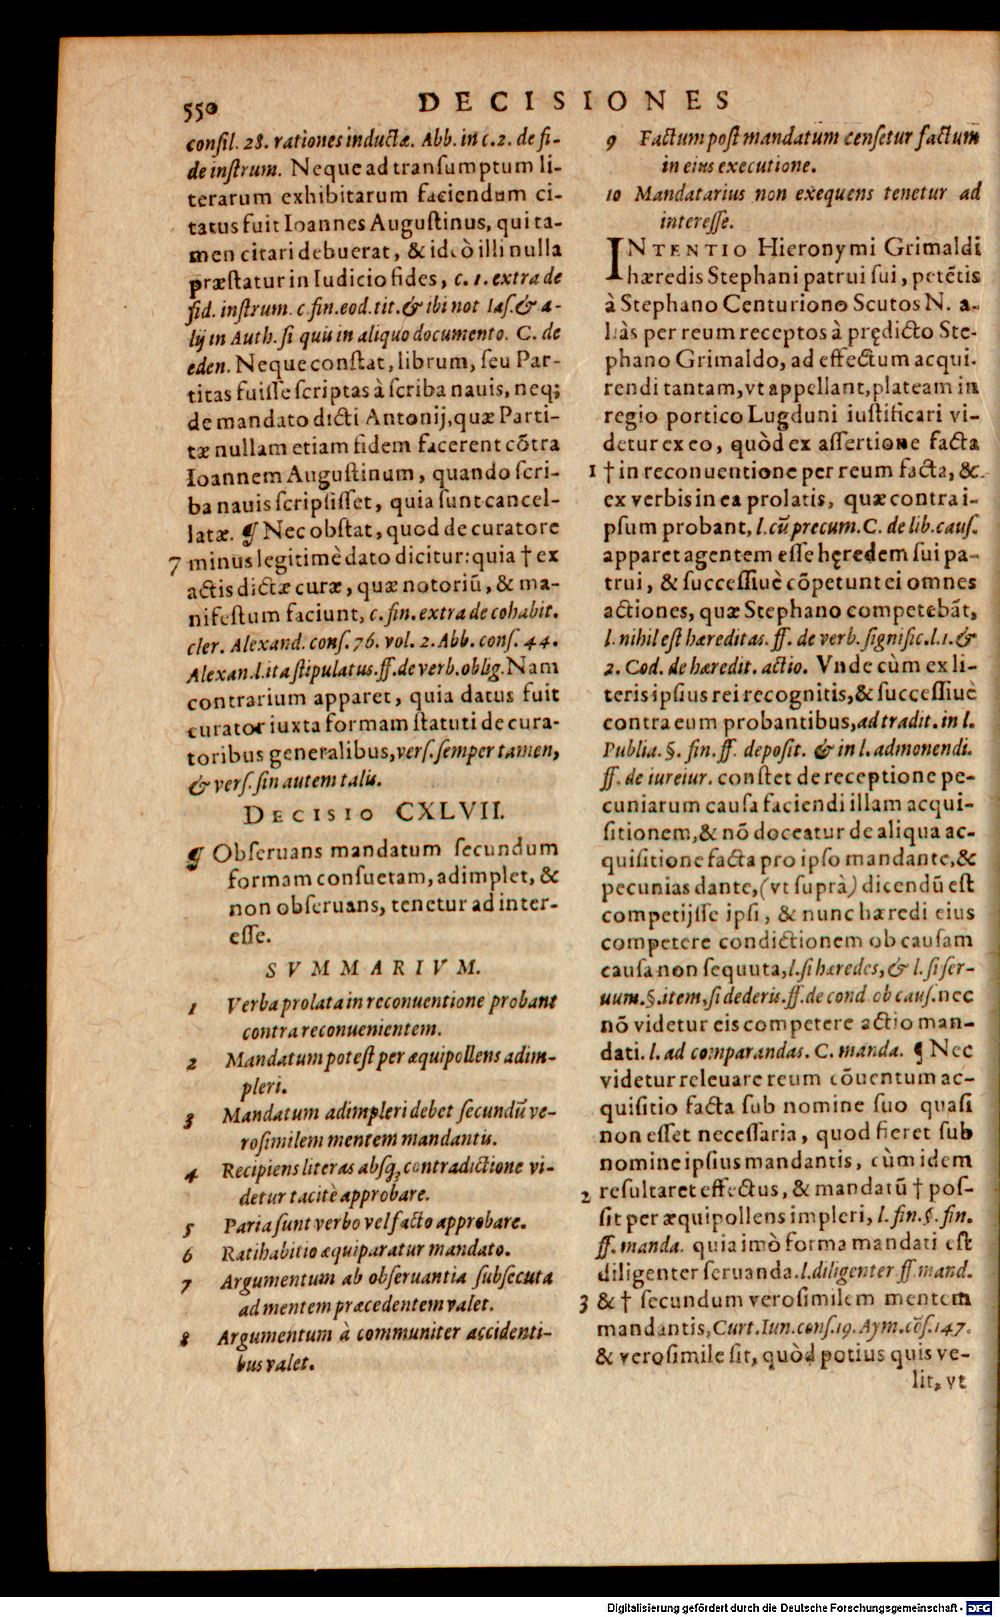 550 DECISIONES
consil. 28. rationes inductæ. Abb. in c. 2. de fi-
de instrum. Neque ad transumptum li-
terarum exhibitarum faciendum ci-
tatus fuit Ioannes Augustinus, qui ta-
men citari debuerat, & ideò illi nulla
præstatur in Iudicio fides, c. 1. extra de
fid. instrum. c. fin. eod. tit. & ibi not Ias. & a-
lij in Auth. si quis in aliquo documento. C. de
eden. Neque constat, librum, seu Par-
titas fuisse scriptas à scriba nauis, neq;
de mandato dicti Antonij, quæ Parti-
tæ nullam etiam fidem facerent cõtra
Ioannem Augustinum, quando scri-
ba nauis scripsisset, quia sunt cancel-
latæ. ¶ Nec obstat, quod de curatore
7 minus legitimè dato dicitur: quia † ex
actis dictæ curæ, quæ notoriũ, & ma-
nifestum faciunt, c. fin. extra de cohabit.
cler. Alexand. cons. 76. vol. 2. Abb. cons. 44.
Alexan. l. ita stipulatus. ff. de verb. oblig. Nam
contrarium apparet, quia datus fuit
curator iuxta formam statuti de cura-
toribus generalibus, vers. semper tamen,
& vers. sin autem talis.
DECISIO CXLVII.
¶ Obseruans mandatum secundum
formam consuetam, adimplet, &
non obseruans, tenetur ad inter-
esse.
SVMMARIVM.
1 Verba prolata in reconuentione probant
contra reconuenientem.
2 Mandatum potest per æquipollens adim-
pleri.
3 Mandatum adimpleri debet secundũ ve-
rosimilem mentem mandantis.
4 Recipiens literas absq; contradictione vi-
detur tacitè approbare.
5 Paria sunt verbo vel facto approbare.
6 Ratihabitio æquiparatur mandato.
7 Argumentum ab obseruantia subsecuta
ad mentem præcedentem valet.
8 Argumentum à communiter accidenti-
bus valet.
9 Factum post mandatum censetur factum
in eius executione.
10 Mandatarius non exequens tenetur ad
interesse.
INTENTIO Hieronymi Grimaldi
hæredis Stephani patrui sui, petẽtis
à Stephano Centuriono Scutos N. a-
liàs per reum receptos à prędicto Ste-
phano Grimaldo, ad effectum acqui.
rendi tantam, vt appellant, plateam in
regio portico Lugduni iustificari vi-
detur ex eo, quòd ex assertione facta
1 † in reconuentione per reum facta, &
ex verbis in ea prolatis, quæ contra i-
psum probant, l. cũ precum. C. de lib. caus.
apparet agentem esse hęredem sui pa-
trui, & successiuè cõpetunt ei omnes
actiones, quæ Stephano competebãt,
l. nihil est hæreditas. ff. de verb. signific. l. 1. &
2. Cod. de hæredit. actio. Vnde cùm ex li-
teris ipsius rei recognitis, & successiuè
contra eum probantibus, ad tradit. in l.
Publia. §. fin. ff. deposit. & in l. admonendi.
ff. de iureiur. constet de receptione pe-
cuniarum causa faciendi illam acqui-
sitionem, & nõ doceatur de aliqua ac-
quisitione facta pro ipso mandante, &
pecunias dante, (vt suprà) dicendũ est
competijsse ipsi, & nunc hæredi eius
competere condictionem ob causam
causa non sequuta, l. si hæredes, & l. si ser-
uum. §. item, si dederis. ff. de cond. ob caus. nec
nõ videtur eis competere actio man-
dati. l. ad comparandas. C. manda. ¶ Nec
videtur releuare reum cõuentum ac-
quisitio facta sub nomine suo quasi
non esset necessaria, quod fieret sub
nomine ipsius mandantis, cùm idem
2 resultaret effectus, & mandatũ † pos-
sit per æquipollens impleri, l. fin. §. fin.
ff. manda. quia imò forma mandati est
diligenter seruanda. l. diligenter ff. mand.
3 & † secundum verosimilem mentem
mandantis, Curt. Iun. cons. 19. Aym. cõs. 147.
& verosimile sit, quòd potius quis ve-
lit, vt
Digitalisierung gefördert durch die Deutsche Forschungsgemeinschaft - DFG